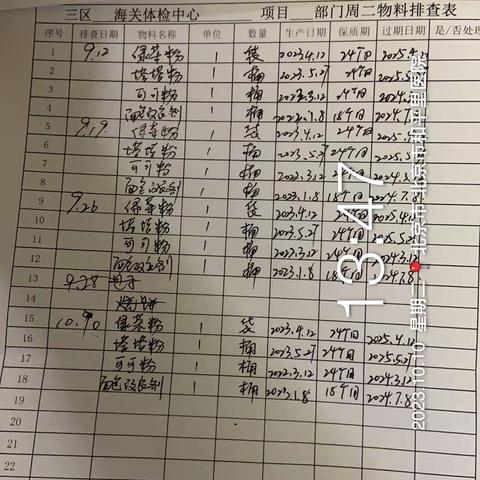 三区 海关体检中心 项目 部门周二物料排查表
序号 排查日期 物料名称 单位 数量 生产日期 保质期 过期日期 是/否处理
1 9.12 绿茶粉 1 袋 2023.4.12 24个月 2025.4.12
2 塔塔粉 1 桶 2023.5.27 24个月 2025.5.27
3 可可粉 1 桶 2022.3.12 24个月 2024.3.12
4 面包改良剂 1 桶 2023.1.8 18个月 2024.7.8
5 9.19 绿茶粉 1 袋 2023.4.12 24个月 2025.4.12
6 塔塔粉 1 桶 2023.5.27 24个月 2025.5.27
7 可可粉 1 桶 2022.3.12 24个月 2024.3.12
8 面包改良剂 1 桶 2023.1.8 18个月 2024.7.8
9 9.26 绿茶粉 1 袋 2023.4.12 24个月 2025.4.12
10 塔塔粉 1 桶 2023.5.27 24个月 2025.5.27
11 可可粉 1 桶 2022.3.12 24个月 2024.3.12
12 面包改良剂 1 桶 2023.1.8 18个月 2024.7.8
13 9.28
14
15 绿茶粉 1 袋 2023.4.12 24个月 2025.4.12
16 塔塔粉 1 桶 2023.5.27 24个月 2025.5.27
17 可可粉 1 桶 2022.3.12 24个月 2024.3.12
18 面包改良剂 1 桶 2023.1.8 18个月 2024.7.8
19
20
21
22
13:47
2023.10.10 星期二 北京市·北京和平里医院